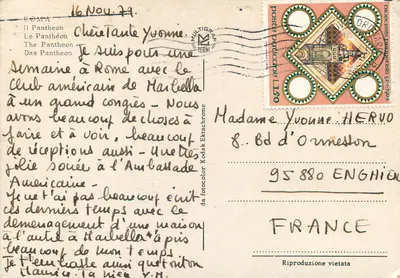 16 Nov. 79.
ROMA
Il Pantheon
Le Panthéon
The Pantheon
Das Pantheon
Chère Tante Yvonne.
Je suis pour une
semaine à Rome avec le
Club américain de Marbella
à un grand congrès - Nous
avons beaucoup de choses à
faire et à voir, beaucoup
de réceptions aussi - Une très
jolie soirée à l'Ambassade
Américaine -
Je ne t'ai pas beaucoup écrit
ces derniers temps avec le
déménagement d'une maison
à l'autre à Marbella a pris
beaucoup de mon temps.
Je t'embrasse ainsi que
Maurice. Ta nièce
da fotocolor Kodak Ektachrome
POSTE VATICANE L.150
Madame Yvonne HERVO
8.. Bd d'Ormesson
95880 ENGHIEN
FRANCE
Riproduzione vietata